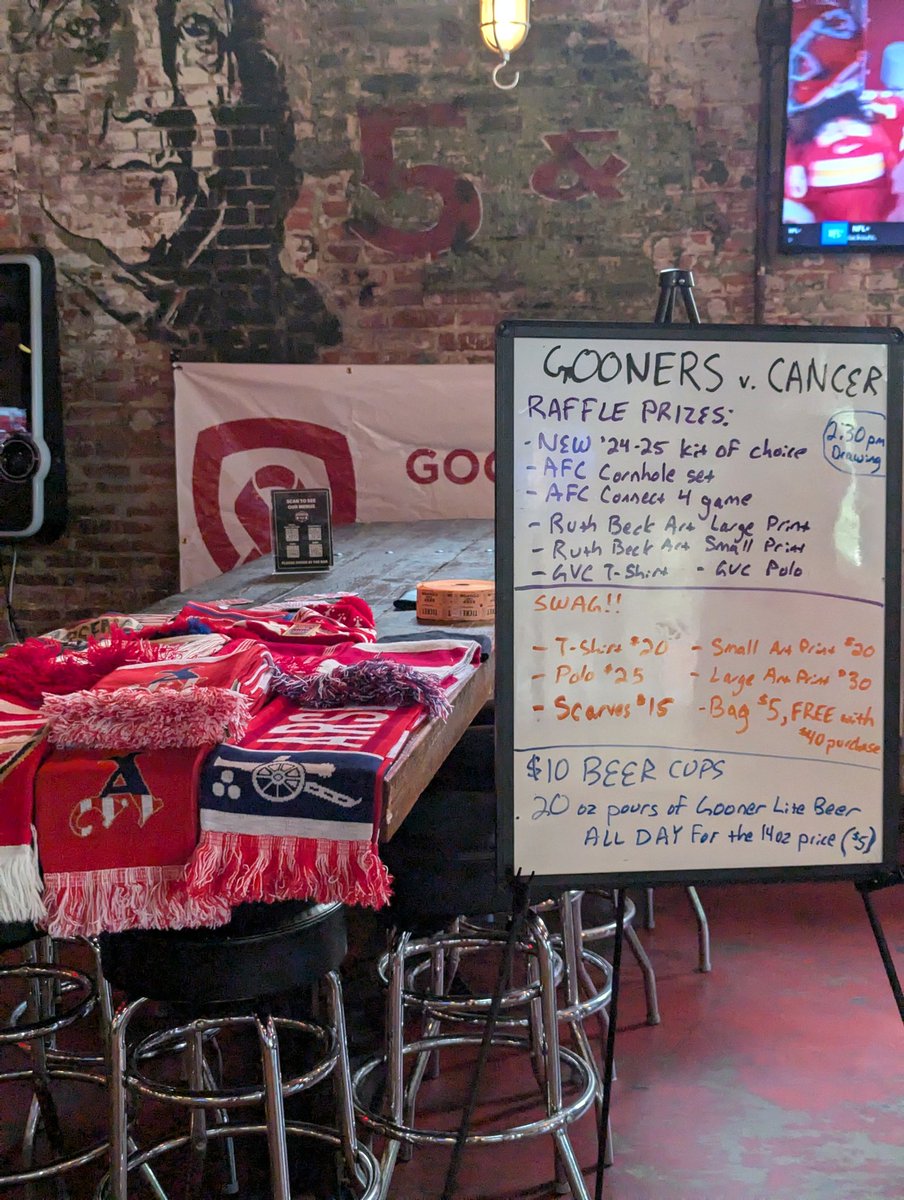 5 &
NFL+
GOO
SCAN TO SEE
OUR MENUS
TICKET
ARS
A
GOONERS v. CANCER
RAFFLE PRIZES:
2:30pm
Drawing
- NEW '24-25 kit of choice
- AFC Cornhole set
- AFC Connect 4 game
- Ruth Beck Art Large Print
- Ruth Beck Art Small Print
- GVC T-Shirt - GVC Polo
SWAG!!
- T-Shirt $20 - Small Art Print $20
- Polo $25 - Large Art Print $30
- Scarves $15 - Bag $5, FREE with
$40 purchase
$10 BEER CUPS
. 20 oz pours of Gooner Lite Beer
ALL DAY For the 14oz price ($5)